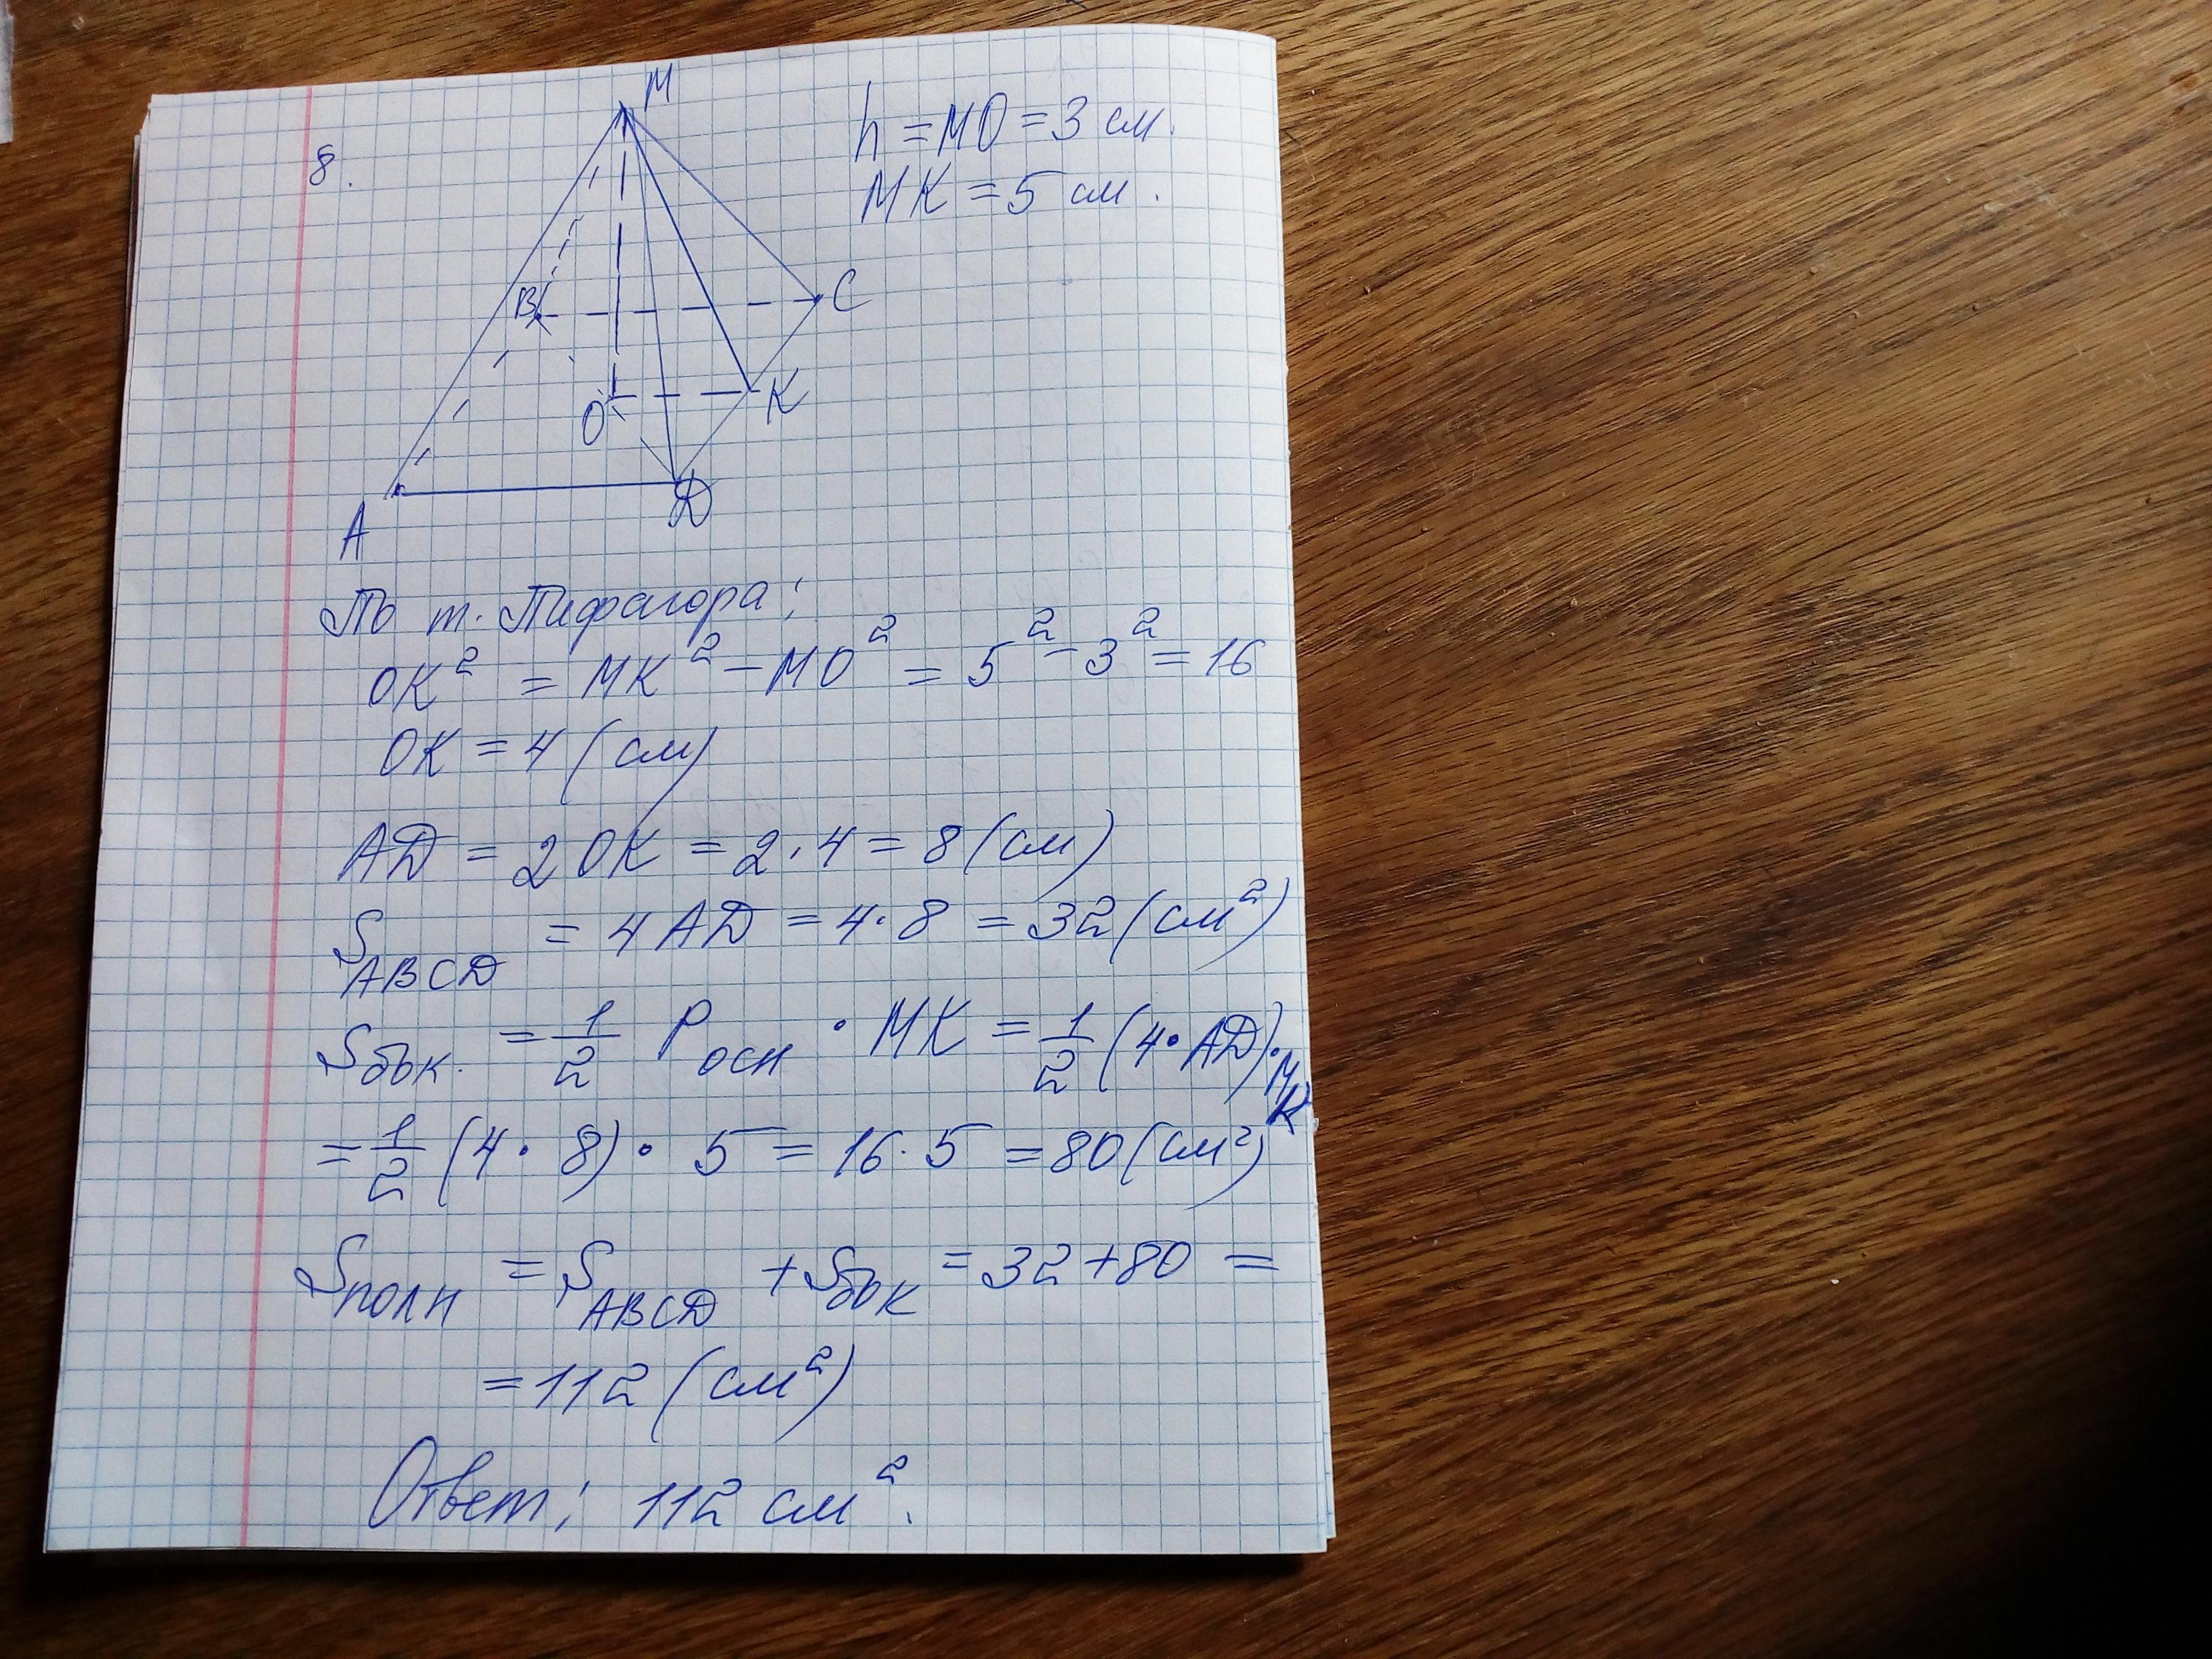 8.
M
h = MO = 3 см.
MK = 5 см.
B
C
O
K
A
D
По т. Пифагора:
OK² = MK² - MO² = 5² - 3² = 16
OK = 4 (см)
AD = 2 OK = 2 · 4 = 8 (см)
S_ABCD = 4 AD = 4 · 8 = 32 (см²)
S_бок. = 1/2 P_осн · MK = 1/2 (4 · AD) · MK
= 1/2 (4 · 8) · 5 = 16 · 5 = 80 (см²)
S_полн = S_ABCD + S_бок = 32 + 80 =
= 112 (см²)
Ответ: 112 см².